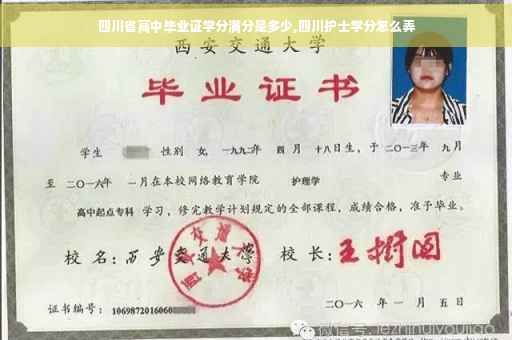 四川省高中毕业证学分满分是多少,四川护士学分怎么弄
西安交通大学
毕业证书
学生 性别 女, 一九九二年 四月 十八日生, 于二〇一三年 九月
至 二〇一六年 一月在本校网络教育学院 护理学 专业
高中起点专科 学习, 修完教学计划规定的全部课程, 成绩合格, 准予毕业。
校名: 西安交通大学 校长: 王树国
西安交通大学
证书编号: 1069872016060
二〇一六年一月五日
微信号: jezhihuiyoujiao